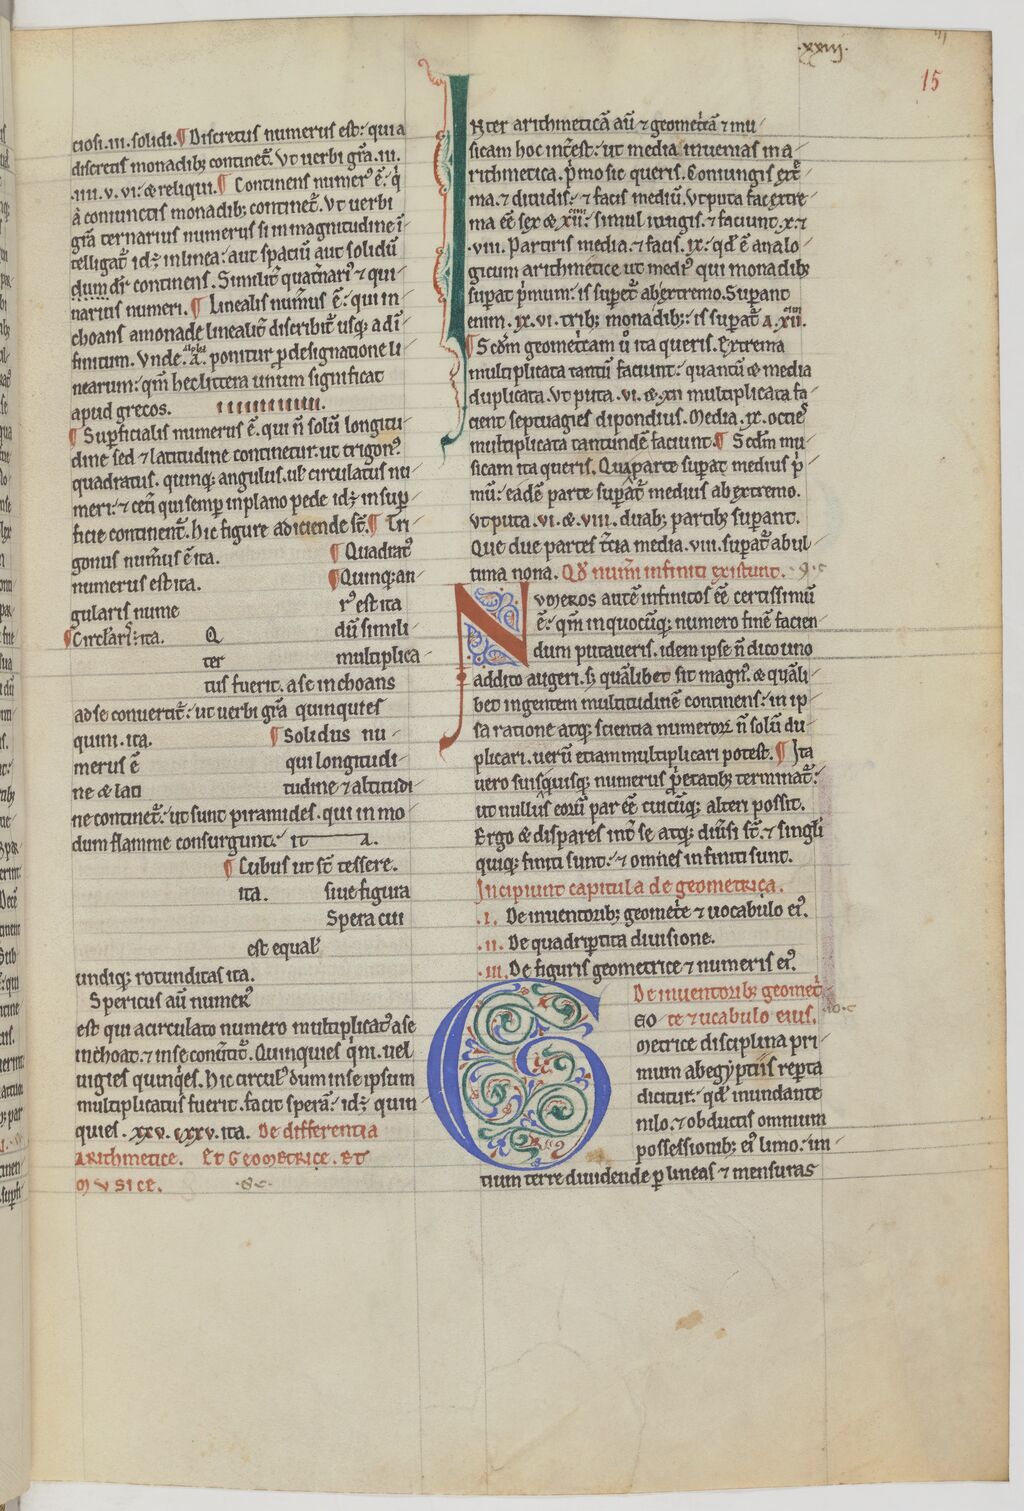 .xxiiij.
15
ciosi .iii. solidi. ¶ Discretus numerus est: qui a
discretis monadibꝫ continet᷑. Ut verbi gr̄a .iii.
.iiii. v. vi. & reliqui. ¶ Continens numer᷒ ē: q̇
à coniunctis monadibꝫ continet᷑. Ut verbi
gr̄a ternarius numerus si in magnitudine ī
telligat᷑ idꝫ in linea: aut spaciū aut solidū
dum dr̄ continens. Similit᷑ quat᷑nari᷒ ⁊ qui-
narius numeri. ¶ Linealis num̄us ē: qui in-
choans a monade linealit᷑ discribit᷑ usqꝫ ad ī-
finitum. Vnde .A. ponitur ꝓ designatione li-
nearum: qm̄ hec littera unum significat
apud grecos. ıııııııııı.
¶ Suꝑficialis numerus ē. qui n̄ solū longitu-
dine sed & latitudine continetur. ut trigon᷒.
quadratus. quinqꝫ angulus. ul̄ circulatus nu-
meri: ⁊ cet̄i qui semꝑ in plano pede idꝫ in suꝑ-
ficie continent᷑. hic figure adiciende st̄. ¶ Tri-
gonus num̄us ē ita. ¶ Quadrat᷒
numerus est ita. ¶ Quinqꝫ an-
gularis nume r᷒ est ita
¶ Circlar᷒: ita. Q dū simili
ter multiplica-
tus fuerit. a se inchoans
ad se convertit᷑: ut verbi gr̄a quinquies
quini. ita. ¶ Solidus nu-
merus ē qui longitudi
ne & lati tudine & altitudi-
ne continet᷑: ut sunt piramides. qui in mo-
dum flamme consurgunt: it a.
¶ Cubus ut st̄ tessere.
ita. siue figura
Spera cui
est equal᷒
undiqꝫ rotunditas ita.
Spericus aū numer᷒
est qui a circulato numero multiplicat᷒ a se
inchoat. ⁊ in se conūtit᷑. Quinquies q̇m. uel
uigies quinq̇es. Hic circul᷒ dum in se ipsum
multiplicatus fuerit. facit sperā: idꝫ quin-
quies .xxv. cxxv. ita. De differentia
ARithmetice. Et Geometrice. Et
Mvsice.
INter arithmeticā aū ⁊ geometr̄ā ⁊ mu-
sicam hoc int᷑est: ut media inuenias in a-
rithmetica. p̄mo sic queris. Coniungis ext̄-
ma. ⁊ diuidis: ⁊ facis mediū. Ut puta fac extre-
ma eē sex & xii: simul iungis. ⁊ faciunt. x. ⁊
.viii. Partiris media. ⁊ facis .ix: qd̄ ē analo-
gicum arithmetice ut medi᷒ qui monadibꝫ
suꝑat p̄mum: is suꝑet᷑ ab extremo. Suꝑant
enim .ix. vi. tribꝫ monadibꝫ: is suꝑat᷑ A .xii.
¶ Scd̄m geometricam ū ita queris. Extrema
multiplicata tantū faciunt: quantū & media
duplicata. Ut puta .vi. & .xii multiplicata fa-
cient septuagies dipondius. Media .ix. octies
multiplicata tantundē faciunt. ¶ Scd̄m mu-
sicam ita queris. Qua parte suꝑat medius p̄-
mū: eadē parte suꝑat᷑ medius ab extremo.
Ut puta .vi. & .viii. duabꝫ partibꝫ suꝑant.
Que due partes t᷑cia media. viii. suꝑat᷑ ab ul-
tima nona. Qd̄ num̄i infiniti existunt.
NVMEROS autē infinitos eē certissimū
ē: qm̄ in quocūqꝫ numero finē facien
dum putaueris. idem ipse n̄ dico uno
addito augeri. sꝫ quālibet sit magn᷒. & quāli-
bet ingentem multitudinē continens: in ip-
sa ratione atqꝫ scientia numeroꝝ n̄ solū du-
plicari. uerū etiam multiplicari potest. ¶ Ita
uero suisquisqꝫ numerus p̄etatibꝫ terminat᷑:
ut nullus eoꝝ par eē cuicūqꝫ alteri possit.
Ergo & dispares int᷑ se atqꝫ diūsi st̄. ⁊ singl̄i
quiqꝫ finiti sunt: ⁊ omnes infiniti sunt.
Incipiunt capitula de geometrica.
.i. De inuentoribꝫ geomet᷑e ⁊ uocabulo ei᷒.
.ii. De quadriꝑtita diuisione.
.iii. De figuris geometrice ⁊ numeris ei᷒.
De inuentoribꝫ geomet᷑
GEO te ⁊ ucabulo eius.
metrice disciplina pri-
mum ab egyptiis reꝑta
dicitur: qd̄ inundante
nilo. ⁊ obductis omnium
possessionibꝫ ei᷒ limo: in-
tium terre diuidende ꝑ lineas ⁊ mensuras